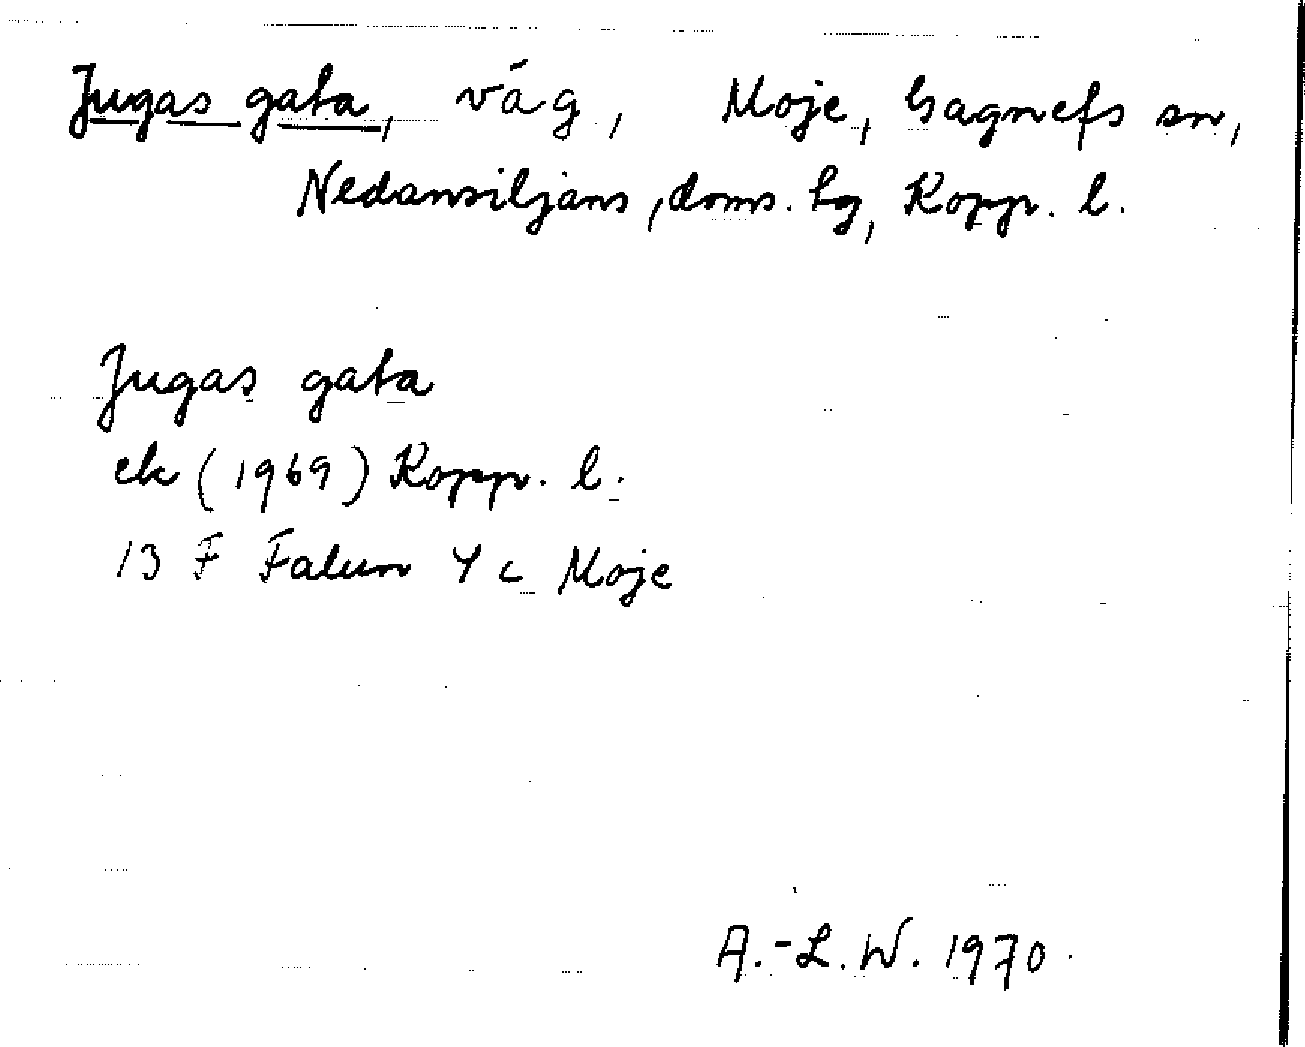 Jugas gata, väg, Moje, Gagnefs sn,
Nedansiljans, doms. hg, Kopp. l.
Jugas gata
ek (1969) Kopp. l.
13 F Falun 4 c Moje
A.-L.W. 1970.